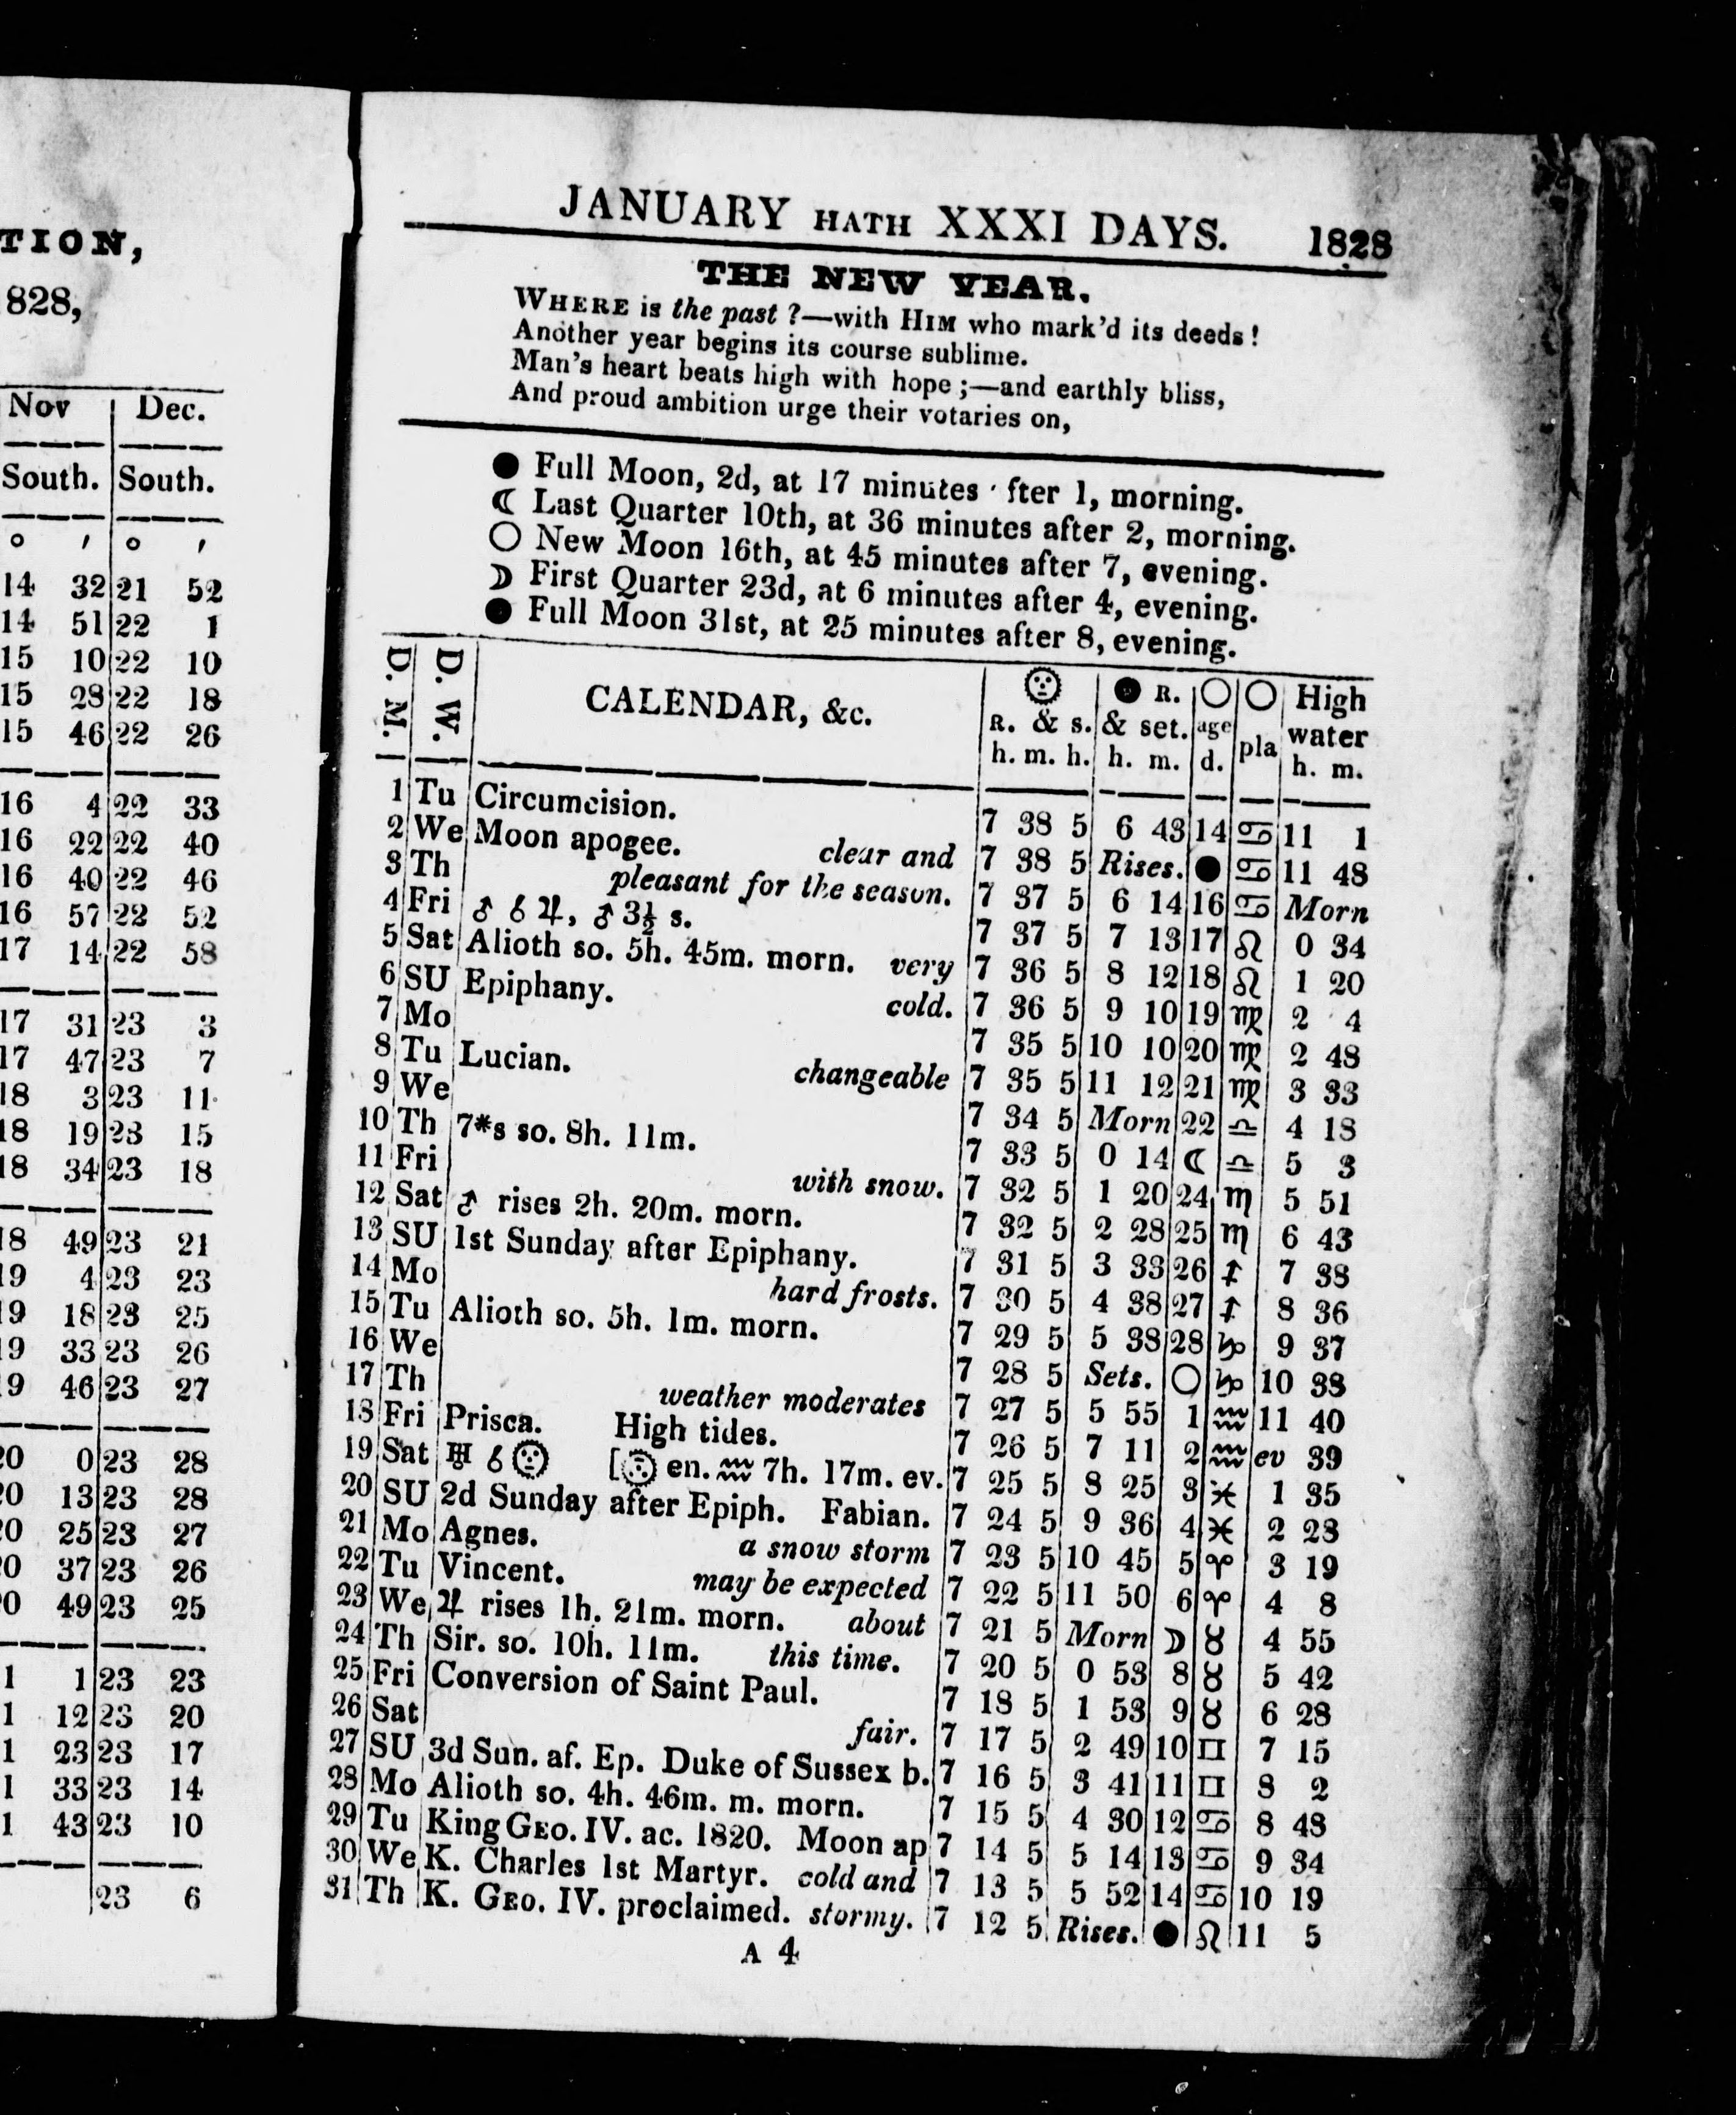 TION,
828,
Nov Dec.
South. South.
° ′ ° ′
14 32 21 52
14 51 22 1
15 10 22 10
15 28 22 18
15 46 22 26
16 4 22 33
16 22 22 40
16 40 22 46
16 57 22 52
17 14 22 58
17 31 23 3
17 47 23 7
18 3 23 11
18 19 23 15
18 34 23 18
18 49 23 21
19 4 23 23
19 18 23 25
19 33 23 26
19 46 23 27
20 0 23 28
20 13 23 28
20 25 23 27
20 37 23 26
20 49 23 25
1 1 23 23
1 12 23 20
1 23 23 17
1 33 23 14
1 43 23 10
23 6
JANUARY HATH XXXI DAYS. 1828
THE NEW YEAR.
WHERE is the past ?—with HIM who mark'd its deeds !
Another year begins its course sublime.
Man's heart beats high with hope ;—and earthly bliss,
And proud ambition urge their votaries on,
● Full Moon, 2d, at 17 minutes fter 1, morning.
☾ Last Quarter 10th, at 36 minutes after 2, morning.
○ New Moon 16th, at 45 minutes after 7, evening.
☽ First Quarter 23d, at 6 minutes after 4, evening.
● Full Moon 31st, at 25 minutes after 8, evening.
D. M. D. W. CALENDAR, &c. ☉ R. & s. h. m. h. ● R. & set. h. m. ○ age d. ○ pla High water h. m.
1 Tu Circumcision. 7 38 5 6 43 14 ♋ 11 1
2 We Moon apogee. clear and 7 38 5 Rises. ● ♋ 11 48
3 Th pleasant for the season. 7 37 5 6 14 16 ♋ Morn
4 Fri ♂ ☌ ♃, ♂ 3½ s. 7 37 5 7 13 17 ♌ 0 34
5 Sat Alioth so. 5h. 45m. morn. very 7 36 5 8 12 18 ♌ 1 20
6 SU Epiphany. cold. 7 36 5 9 10 19 ♍ 2 4
7 Mo 7 35 5 10 10 20 ♍ 2 48
8 Tu Lucian. changeable 7 35 5 11 12 21 ♍ 3 33
9 We 7 34 5 Morn 22 ♎ 4 18
10 Th 7*s so. 8h. 11m. 7 33 5 0 14 ☾ ♎ 5 3
11 Fri with snow. 7 32 5 1 20 24 ♏ 5 51
12 Sat ♂ rises 2h. 20m. morn. 7 32 5 2 28 25 ♏ 6 43
13 SU 1st Sunday after Epiphany. 7 31 5 3 33 26 ♐ 7 38
14 Mo hard frosts. 7 30 5 4 38 27 ♐ 8 36
15 Tu Alioth so. 5h. 1m. morn. 7 29 5 5 38 28 ♑ 9 37
16 We 7 28 5 Sets. ○ ♑ 10 38
17 Th weather moderates 7 27 5 5 55 1 ♒ 11 40
18 Fri Prisca. High tides. 7 26 5 7 11 2 ♒ ev 39
19 Sat ♅ ☌ ☉ [☉ en. ♒ 7h. 17m. ev. 7 25 5 8 25 3 ♓ 1 35
20 SU 2d Sunday after Epiph. Fabian. 7 24 5 9 36 4 ♓ 2 28
21 Mo Agnes. a snow storm 7 23 5 10 45 5 ♈ 3 19
22 Tu Vincent. may be expected 7 22 5 11 50 6 ♈ 4 8
23 We ♃ rises 1h. 21m. morn. about 7 21 5 Morn ☽ ♉ 4 55
24 Th Sir. so. 10h. 11m. this time. 7 20 5 0 53 8 ♉ 5 42
25 Fri Conversion of Saint Paul. 7 18 5 1 53 9 ♉ 6 28
26 Sat fair. 7 17 5 2 49 10 ♊ 7 15
27 SU 3d Sun. af. Ep. Duke of Sussex b. 7 16 5 3 41 11 ♊ 8 2
28 Mo Alioth so. 4h. 46m. m. morn. 7 15 5 4 30 12 ♋ 8 48
29 Tu King GEO. IV. ac. 1820. Moon ap 7 14 5 5 14 13 ♋ 9 34
30 We K. Charles 1st Martyr. cold and 7 13 5 5 52 14 ♋ 10 19
31 Th K. GEO. IV. proclaimed. stormy. 7 12 5 Rises. ● ♌ 11 5
A 4